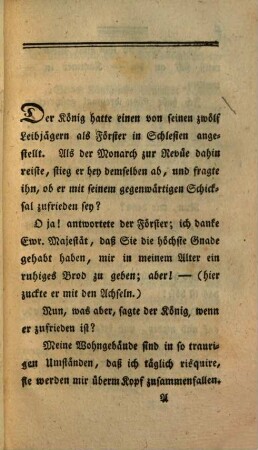 Der König hatte einen von seinen zwölf
Leibjägern als Förster in Schlesien ange-
stellt. Als der Monarch zur Revüe dahin
reiste, stieg er bey demselben ab, und fragte
ihn, ob er mit seinem gegenwärtigen Schick-
sal zufrieden sey?
O ja! antwortete der Förster; ich danke
Ewr. Majestät, daß Sie die höchste Gnade
gehabt haben, mir in meinem Alter ein
ruhiges Brod zu geben; aber! — (hier
zuckte er mit den Achseln.)
Nun, was aber, sagte der König, wenn
er zufrieden ist?
Meine Wohngebäude sind in so trauri-
gen Umständen, daß ich täglich risquire,
sie werden mir überm Kopf zusammenfallen.
A